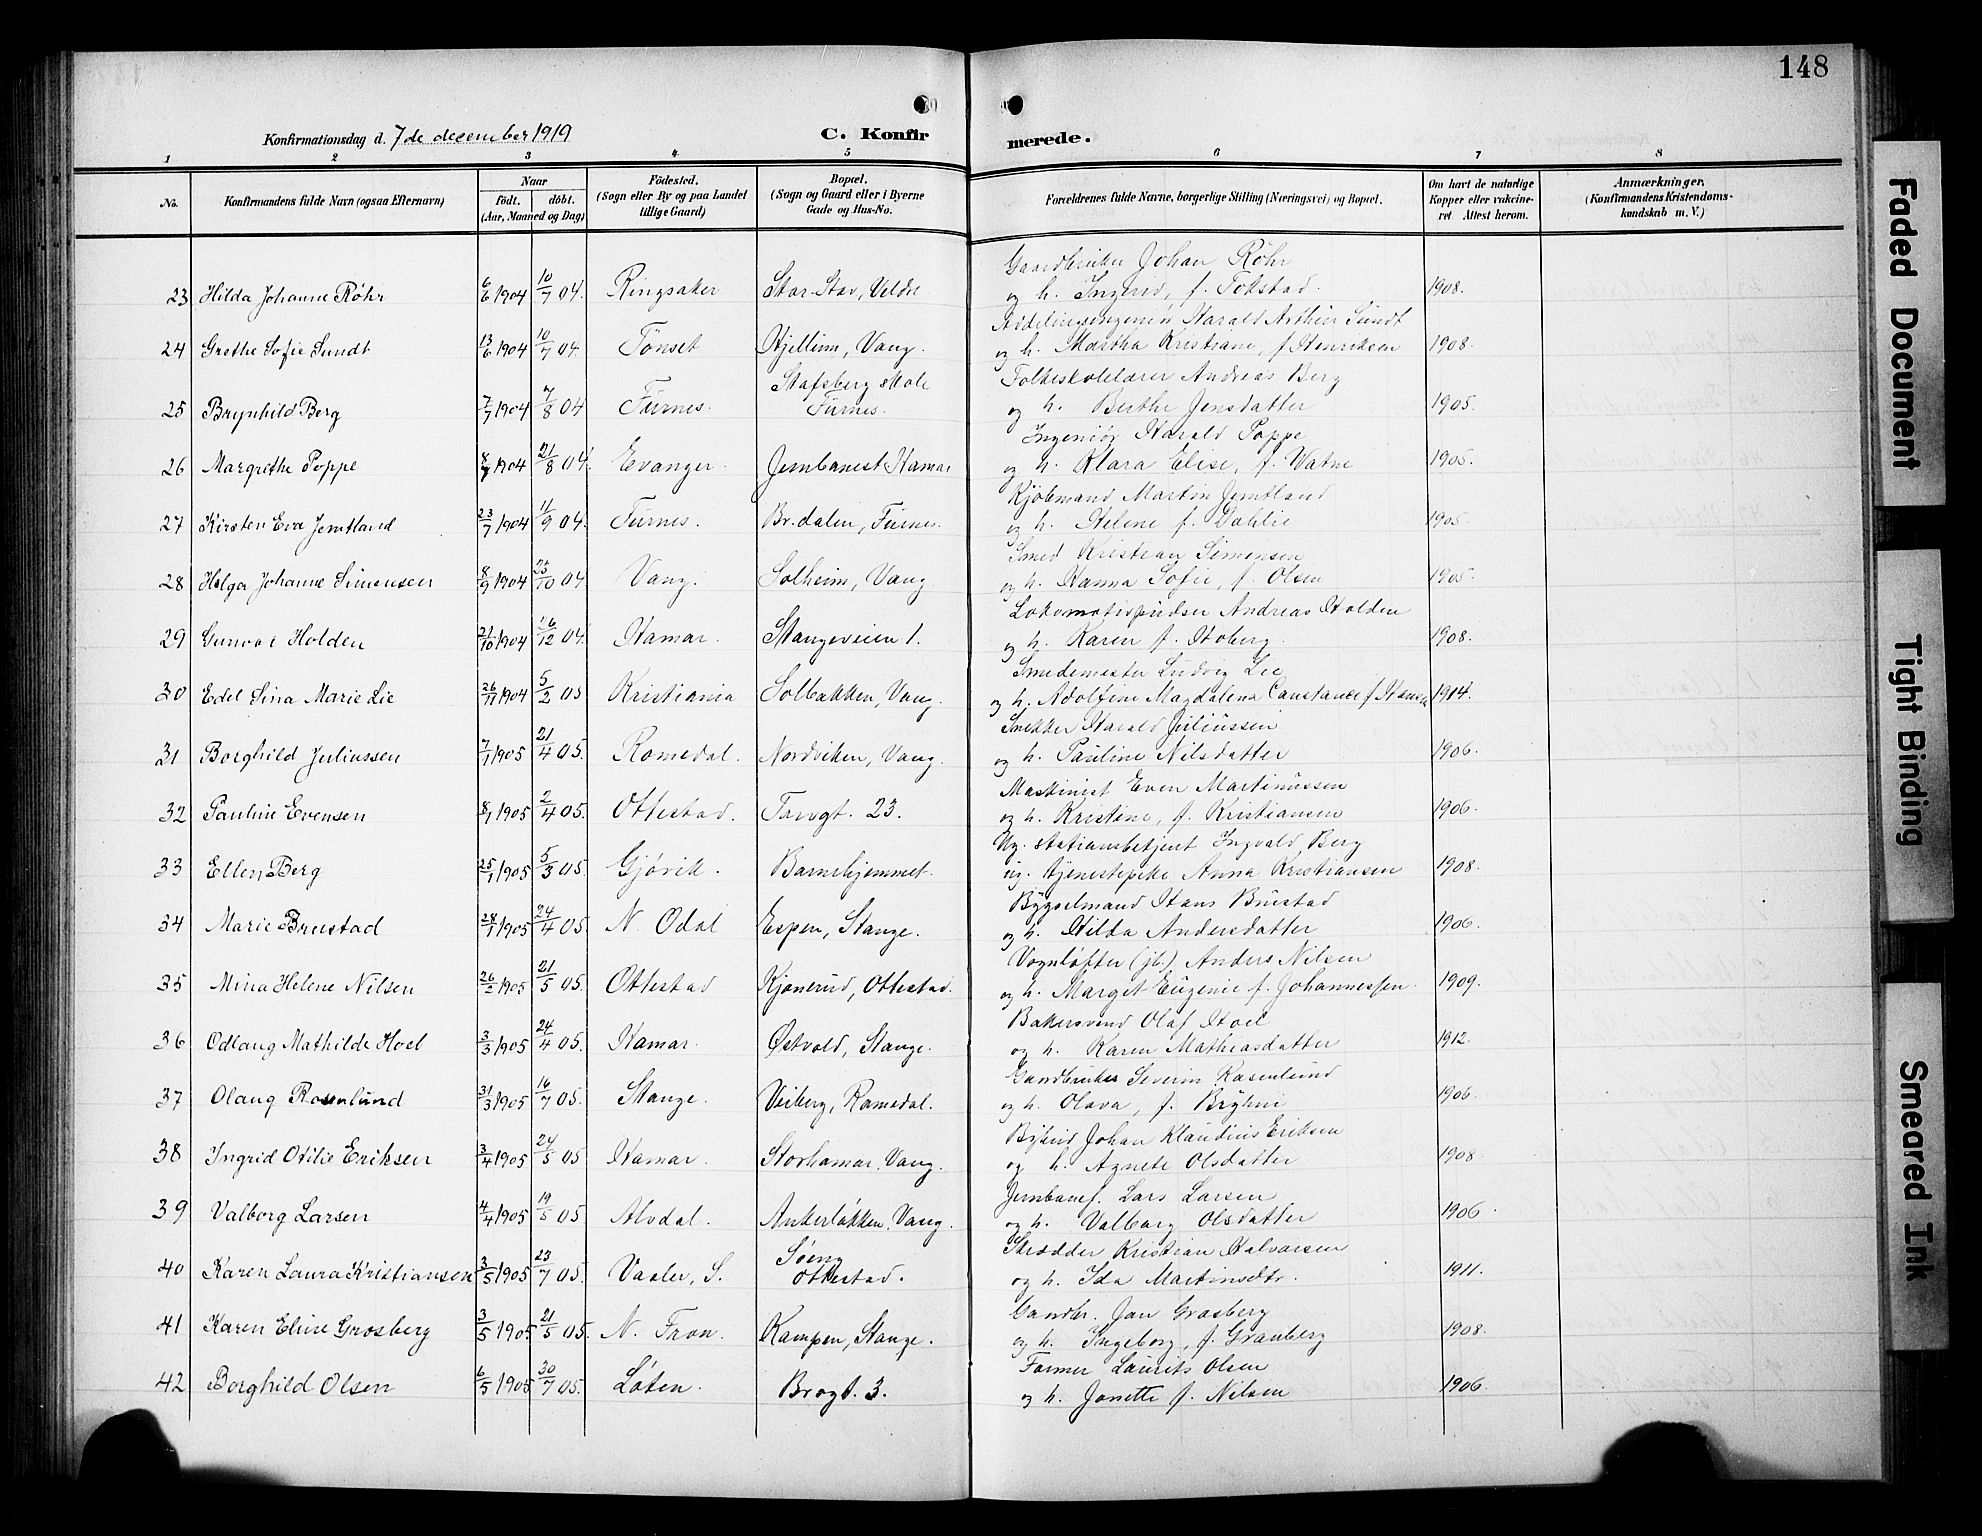 148
Konfirmationsdag d. 7de december 1919
C. Konfirmerede.
1 2 3 4 5 6 7 8
No.
Konfirmandens fulde Navn (ogsaa Efternavn)
Naar
født. døbt.
(Aar, Maaned og Dag)
Fødested.
(Sogn eller By og paa Landet
tillige Gaard)
Bopæl.
(Sogn og Gaard eller i Byerne
Gade og Hus-No.
Forældrenes fulde Navne, borgerlige Stilling (Næringsvei) og Bopæl.
Om havt de naturlige
Kopper eller vakcine-
ret Attest herom.
Anmærkninger.
(Konfirmandens Kristendoms-
kundskab m. V.)
Gaardbruker Johan Røhr
23 Hilda Johanne Røhr 6/6 1904 10/7 04. Ringsaker Stor-Stav, Veldre og h. Ingerid, f. Tokstad. 1908.
Avdelingsingeniør Harald Arthur Sundt
24 Grethe Sofie Sundt 13/6 1904 10/7 04. Tønset Hjellum, Vang. og h. Martha Kristiane, f. Henriksen 1908.
Stafsberg skole Folkeskolelærer Andreas Berg
25 Brynhild Berg 7/7 1904 7/8 04 Furnes. Furnes. og h. Berthe Jensdatter 1905.
Ingeniør Harald Poppe
26 Margrethe Poppe 8/7 1904 21/8 04. Evanger. Jernbanest. Hamar og h. Klara Elise, f. Watne 1905.
Kjøbmand Martin Jemtland
27 Kirsten Eva Jemtland 23/7 1904 11/9 04. Furnes. Br.dalen, Furnes. og h. Helene f. Dahlie 1905.
Smed Kristian Simensen
28 Helga Johanne Simensen 8/9 1904 23/10 04 Vang. Solheim, Vang og h. Hanna Sofie, f. Olsen 1905.
Lokomotivpudser Andreas Holden
29 Gunvor Holden 21/10 1904 16/12 04. Hamar. Stangeveien 1. og h. Karen f. Hoberg. 1908.
Smedemester Ludvig Lie
30 Edel Sina Marie Lie 26/11 1904 5/2 05 Kristiania Solbakken, Vang. og h. Adolfine Magdalena Constance f. 1914.
Snekker Harald Juliussen
31 Borghild Juliussen 7/1 1905 21/4 05. Romedal. Nordviken, Vang. og h. Pauline Nilsdatter 1906.
Maskinist Even Martinussen
32 Pauline Evensen 8/1 1905 2/4 05. Ottestad. Torvgt. 23. og h. Kristine, f. Kristiansen 1906.
Ug. stationsbetjent Ingvald Berg
33 Ellen Berg 25/1 1905 5/3 05. Gjøvik. Barnehjemmet. ug. tjenestepike Anna Kristiansen 1908.
Bygselmand Hans Brustad
34 Marie Brustad 28/1 1905 24/4 05. N. Odal Espen, Stange. og h. Hilda Andersdatter 1906.
Vognløfter (jb.) Anders Nilsen
35 Mina Helene Nilsen 26/2 1905 21/5 05. Ottestad Kjonerud, Ottestad. og h. Margit Eugenie f. Johannessen. 1909.
Bakersvend Olaf Hoel
36 Odlaug Mathilde Hoel 3/3 1905 24/4 05. Hamar. Østvold, Stange. og h. Karen Mathiasdatter 1912.
Gaardbruker Severin Rosenlund
37 Olaug Rosenlund 31/3 1905 16/7 05. Stange. Veiberg, Romedal. og h. Olava, f. Bryhni 1906.
Johan Klaudius Eriksen
38 Ingrid Otilie Eriksen 3/4 1905 24/5 05 Hamar. Storhamar, Vang. og h. Agnete Olsdatter. 1908.
Jernbanef. Lars Larsen
39 Valborg Larsen 4/4 1905 19/5 05. Alvdal. Ankerløkken, Vang. og h. Valborg Olsdatter 1906.
Søeng Skrædder Kristian Halvorsen
40 Karen Laura Kristiansen 3/5 1905 23/7 05. Vaaler, S. Ottestad. og h. Ida Martinsdtr. 1911.
Gaardbr. Jon Grosberg
41 Karen Eline Grosberg 3/5 1905 21/5 05. N. Fron. Kampen, Stange. og h. Ingeborg, f. Granberg 1908.
Former Laurits Olsen
42 Borghild Olsen 6/5 1905 30/7 05. Løten. Brogt. 3. og h. Jonette f. Nilsen 1906.
Faded Document
Tight Binding
Smeared Ink